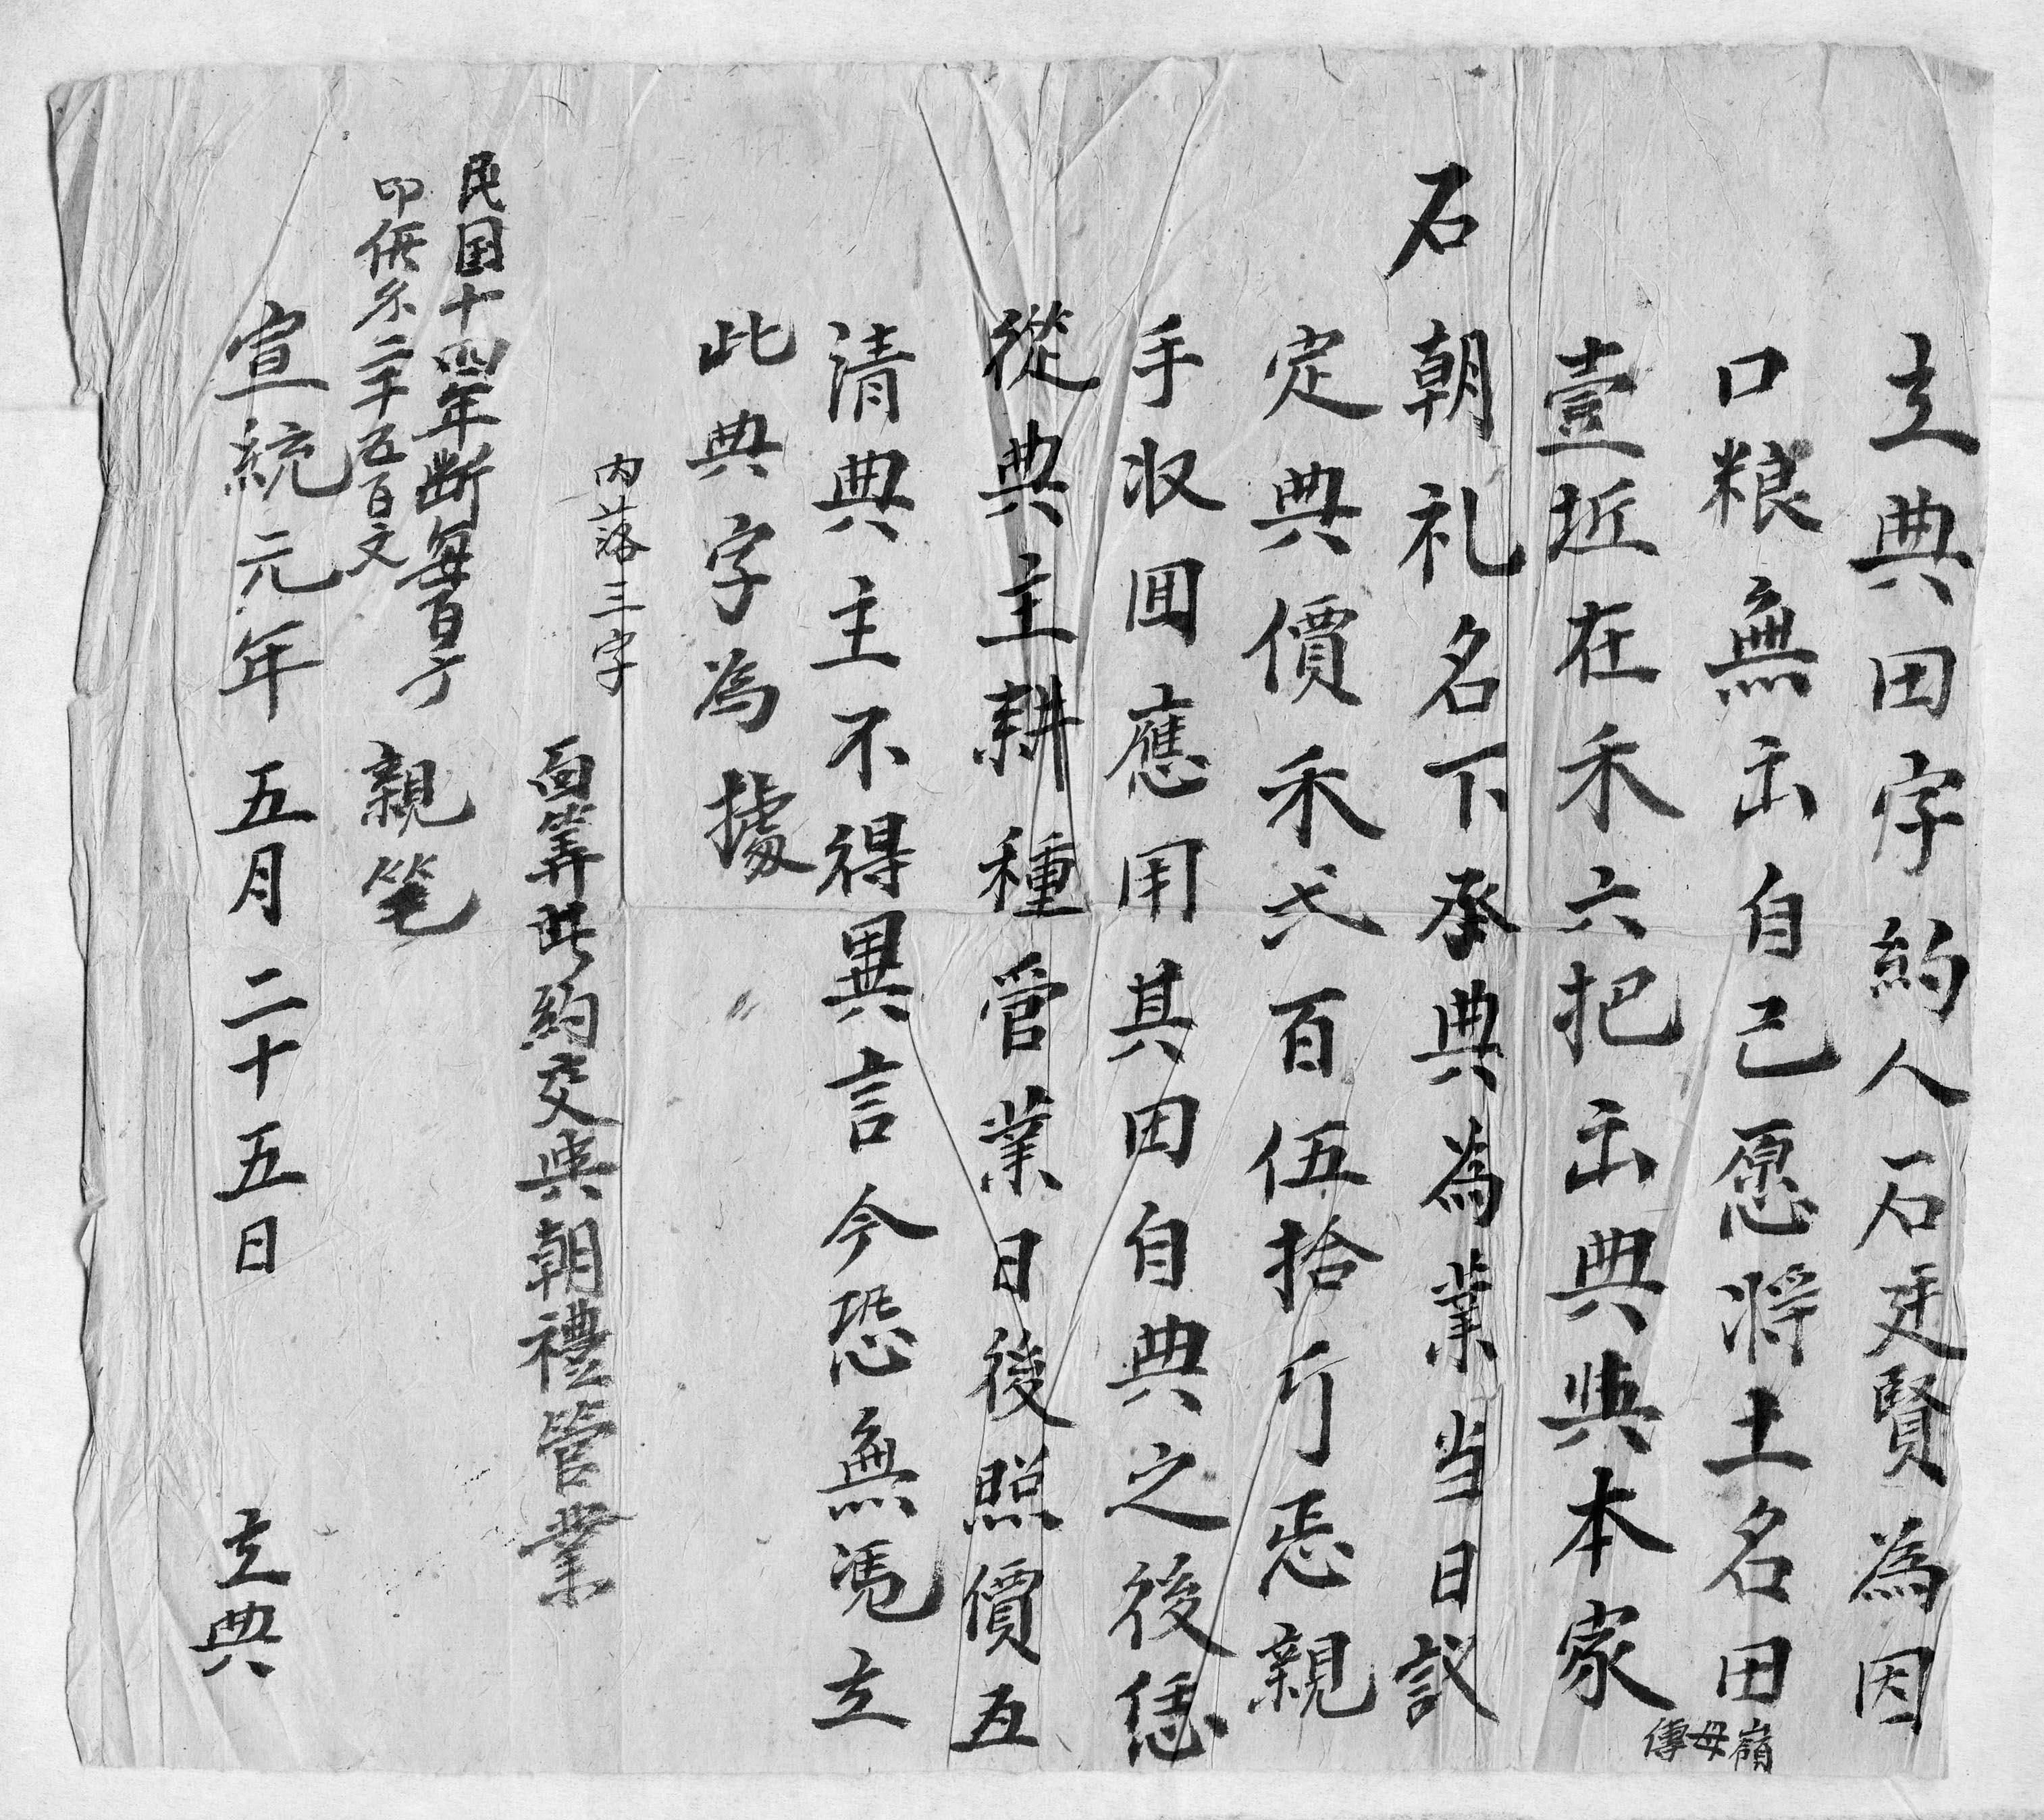 立典田字約人石廷賢為因
口粮無出自己愿將土名田
嶺母傳
壹坵在禾六把出典與本家
石朝礼名下承典為業当日議
定典價禾弍百伍拾斤恁親
手收囬應用其田自典之後恁
從典主耕種管業日後照價五
清典主不得異言今恐無凴立
此典字為據
内落三字
面筭此約交與朝禮管業
民国十四年断每百斤
印
二千五百文
親笔
宣統元年五月二十五日 立典